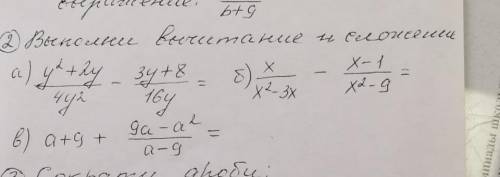 выражение: /(b+9)
② Выполни вычитание и сложение
а) (y²+2y)/(4y²) - (3y+8)/(16y) = б) x/(x²-3x) - (x-1)/(x²-9) =
в) a+9 + (9a-a²)/(a-9) =
Сократи дроби: